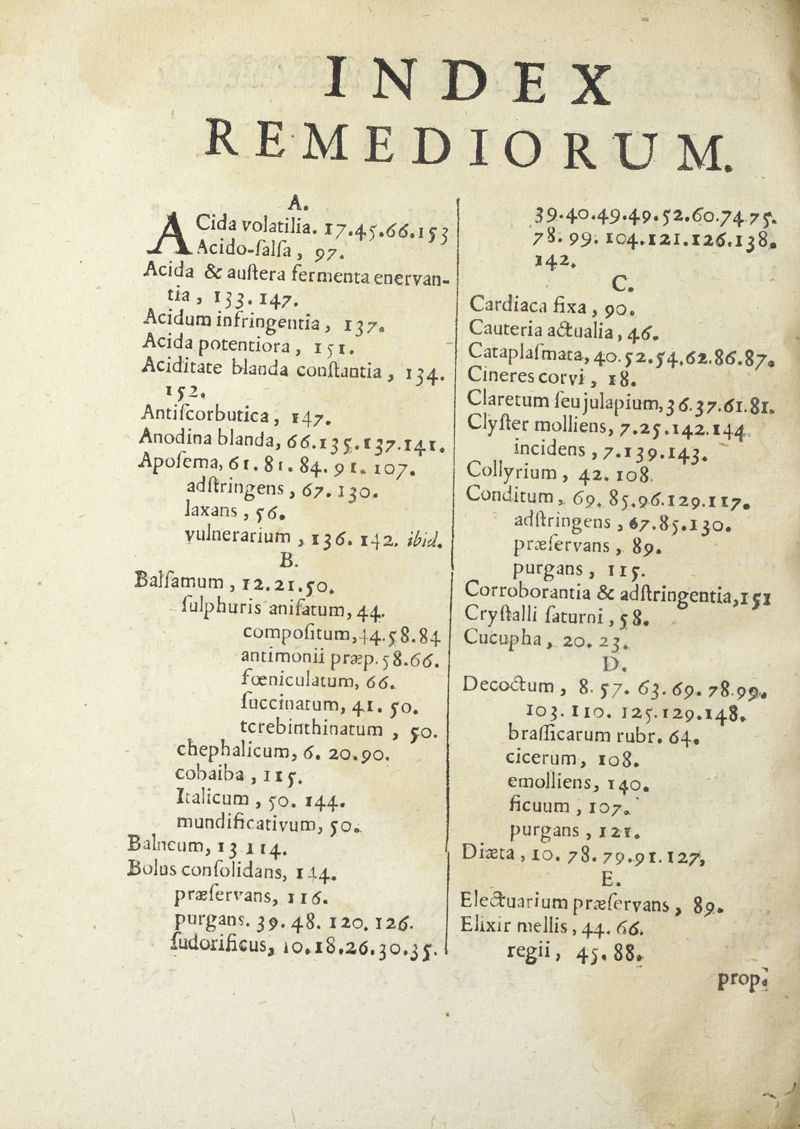 INDEX
REMEDIORUM.
A.
ACida volatilia. 17.45.66.153
Acido-ſalſa, 97.
Acida & auſtera fermenta enervan-
tia, 133.147.
Acidum infringentia, 137.
Acida potentiora, 151.
Aciditate blanda conſtantia, 134.
152.
Antiſcorbutica, 147.
Anodina blanda, 66.135.137.141.
Apoſema, 61. 81. 84. 91. 107.
adſtringens, 67. 130.
laxans, 56.
vulnerarium, 136. 142. ibid.
B.
Balſamum, 12.21.50.
ſulphuris aniſatum, 44.
compoſitum, 44.58.84
antimonii præp. 58.66.
fœniculatum, 66.
ſuccinatum, 41. 50.
terebinthinatum, 50.
chephalicum, 6. 20.90.
cobaiba, 115.
Italicum, 50. 144.
mundificativum, 50.
Balneum, 13 114.
Bolus conſolidans, 144.
præſervans, 116.
purgans. 39. 48. 120. 126.
ſudorificus, 10.18.26.30.35.
39.40.49.49.52.60.74.75.
78. 99. 104.121.126.138.
142.
C.
Cardiaca fixa, 90.
Cauteria actualia, 46.
Cataplaſmata, 40.52.54.62.86.87.
Cineres corvi, 18.
Claretum ſeu julapium, 36.37.61.81.
Clyſter molliens, 7.25.142.144
incidens, 7.139.143.
Collyrium, 42. 108.
Conditum, 69. 85.96.129.117.
adſtringens, 67.85.130.
præſervans, 89.
purgans, 115.
Corroborantia & adſtringentia, 151
Cryſtalli ſaturni, 58.
Cucupha, 20. 23.
D.
Decoctum, 8. 57. 63. 69. 78.99.
103. 110. 125.129.148.
braſſicarum rubr. 64.
cicerum, 108.
emolliens, 140.
ficuum, 107.
purgans, 121.
Diæta, 10. 78. 79.91.127,
E.
Electuarium præſervans, 89.
Elixir mellis, 44. 66.
regii, 45. 88.
prop.